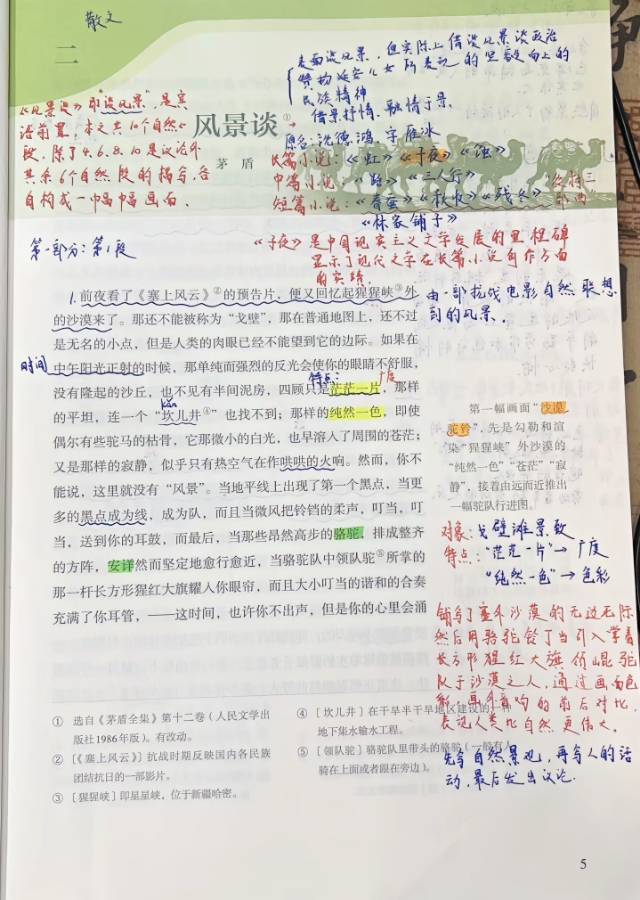 散文
二
表面谈风景，但实际上借谈风景谈政治
赞扬延安儿女所表现的坚毅向上的
民族精神
借景抒情，融情于景。
《风景谈》即"谈风景"，是宾
语前置，本文共10个自然
段，除了4.6.8.10是议论外
其余6个自然段的描写，各
自构成一幅幅画面。
风景谈①
茅 盾
原名：沈德鸿，字雁冰
长篇小说：《虹》《子夜》《蚀》
中篇小说：《路》《三人行》
短篇小说：《春蚕》《秋收》《残冬》
《林家铺子》
第一部分：第1段
《子夜》是中国现实主义文学发展的里程碑
显示了现代文学在长篇小说创作方面
的实绩。
1.前夜看了《塞上风云》②的预告片，便又回忆起猩猩峡③外
的沙漠来了。那还不能被称为“戈壁”，那在普通地图上，还不过
是无名的小点，但是人类的肉眼已经不能望到它的边际。如果在
中午阳光正射的时候，那单纯而强烈的反光会使你的眼睛不舒服，
没有隆起的沙丘，也不见有半间泥房，四顾只是茫茫一片，那样
的平坦，连一个“坎儿井④”也找不到；那样的纯然一色，即使
偶尔有些驼马的枯骨，它那微小的白光，也早溶入了周围的苍茫；
又是那样的寂静，似乎只有热空气在作哄哄的火响。然而，你不
能说，这里就没有“风景”。当地平线上出现了第一个黑点，当更
多的黑点成为线，成为队，而且当微风把铃铛的柔声，叮当，叮
当，送到你的耳鼓，而最后，当那些昂然高步的骆驼，排成整齐
的方阵，安详然而坚定地愈行愈近，当骆驼队中领队驼⑤所掌的
那一杆长方形猩红大旗耀入你眼帘，而且大小叮当的谐和的合奏
充满了你耳管，——这时间，也许你不出声，但是你的心里会涌
时间
特点：
广度
由一部抗战电影自然联想
到的风景。
第一幅画面“沙漠
驼铃”，先是勾勒和渲
染“猩猩峡”外沙漠的
“纯然一色”“苍茫”“寂
静”，接着由远而近推出
一幅驼队行进图。
对象：戈壁滩景致
特点：“茫茫一片”→广度
“纯然一色”→色彩
铺写了塞外沙漠的无边无际
然后用骆驼铃叮当引入掌着
长方形猩红大旗
队于沙漠之人，通过画面色
的前后对比，
表现人类比自然更伟大。
先写自然景观，再写人的活
动，最后发出议论。
① 选自《茅盾全集》第十二卷（人民文学出
版社1986年版）。有改动。
②［《塞上风云》］抗战时期反映国内各民族
团结抗日的一部影片。
③［猩猩峡］即星星峡，位于新疆哈密。
④［坎儿井］在干旱半干旱地区建设的一种
地下集水输水工程。
⑤［领队驼］骆驼队里带头的骆驼（一般有人
骑在上面或者跟在旁边）。
5